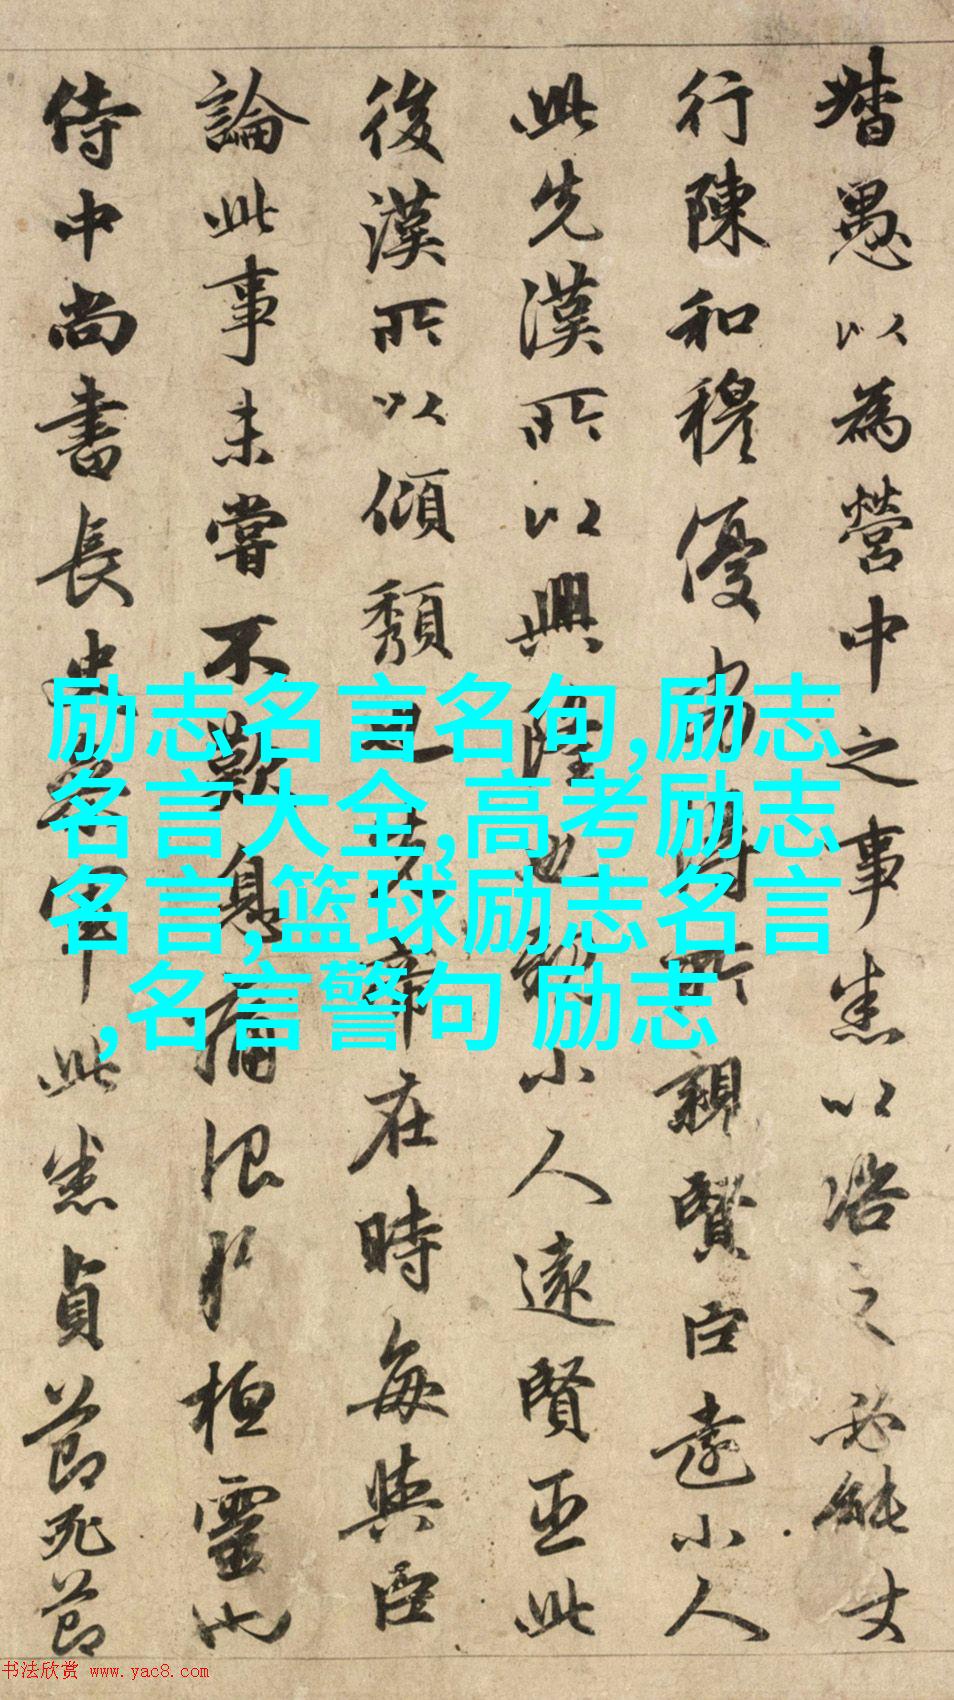 督愚以為營中之事悉以咨之必能使
行陳和穆優劣得所親賢臣遠小人
此先漢所以興隆也親小人遠賢臣此
後漢所以傾頹也先帝在時每與臣
論此事未嘗不歎息痛恨於桓靈也
侍中尚書長史參軍此悉貞節死節
励志名言名句,励志
名言大全,高考励志
名言,篮球励志名言
,名言警句 励志
书法欣赏 www.yac8.com